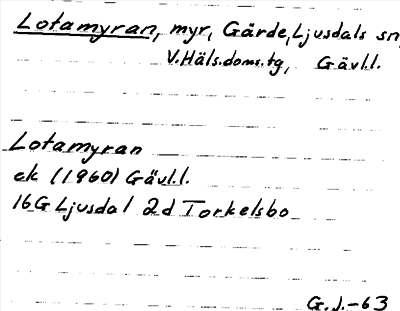 Lotamyran, myr, Gärde, Ljusdals sn,
V.Häls.doms.tg, Gävl.l.
Lotamyran
ek (1960) Gävl.l.
16G Ljusdal 2d Torkelsbo
G.J.-63